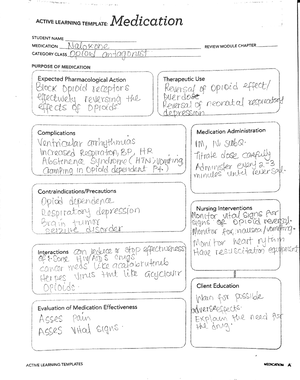 ACTIVE LEARNING TEMPLATE: Medication
STUDENT NAME
MEDICATION Naloxone
REVIEW MODULE CHAPTER
CATEGORY CLASS Opioid antagonist
PURPOSE OF MEDICATION
Expected Pharmacological Action
Block opioid receptors
effectively reversing the
effects of opioids
Therapeutic Use
Reversal of opioid effect/
overdose
Reversal of neonatal respiratory
depression
Complications
Ventricular arrhythmias
Increased Respiration, BP, HR
Abstinence Syndrome (HTN, vomiting
in opioid dependent Pt.)
Medication Administration
IM, IV, SubQ
Titrate dose carefully
Administer every 2-3
minutes until reversal
Contraindications/Precautions
Opioid dependence
Respiratory depression
Brain tumor
seizure disorder
Nursing Interventions
Monitor vital signs for
signs of opioid reversal
Monitor for nausea/vomiting
Monitor heart rhythm
Have resuscitation equipment
Interactions
can reduce or stop effectiveness
HIV/AIDS drugs
cancer meds like acalabrutinib
Herpes virus like acyclovir
Opioids
Client Education
for possible
adverse effects
Explain the need for
the drug
Evaluation of Medication Effectiveness
Asses Pain
Asses vital signs
ACTIVE LEARNING TEMPLATES
MEDICATION